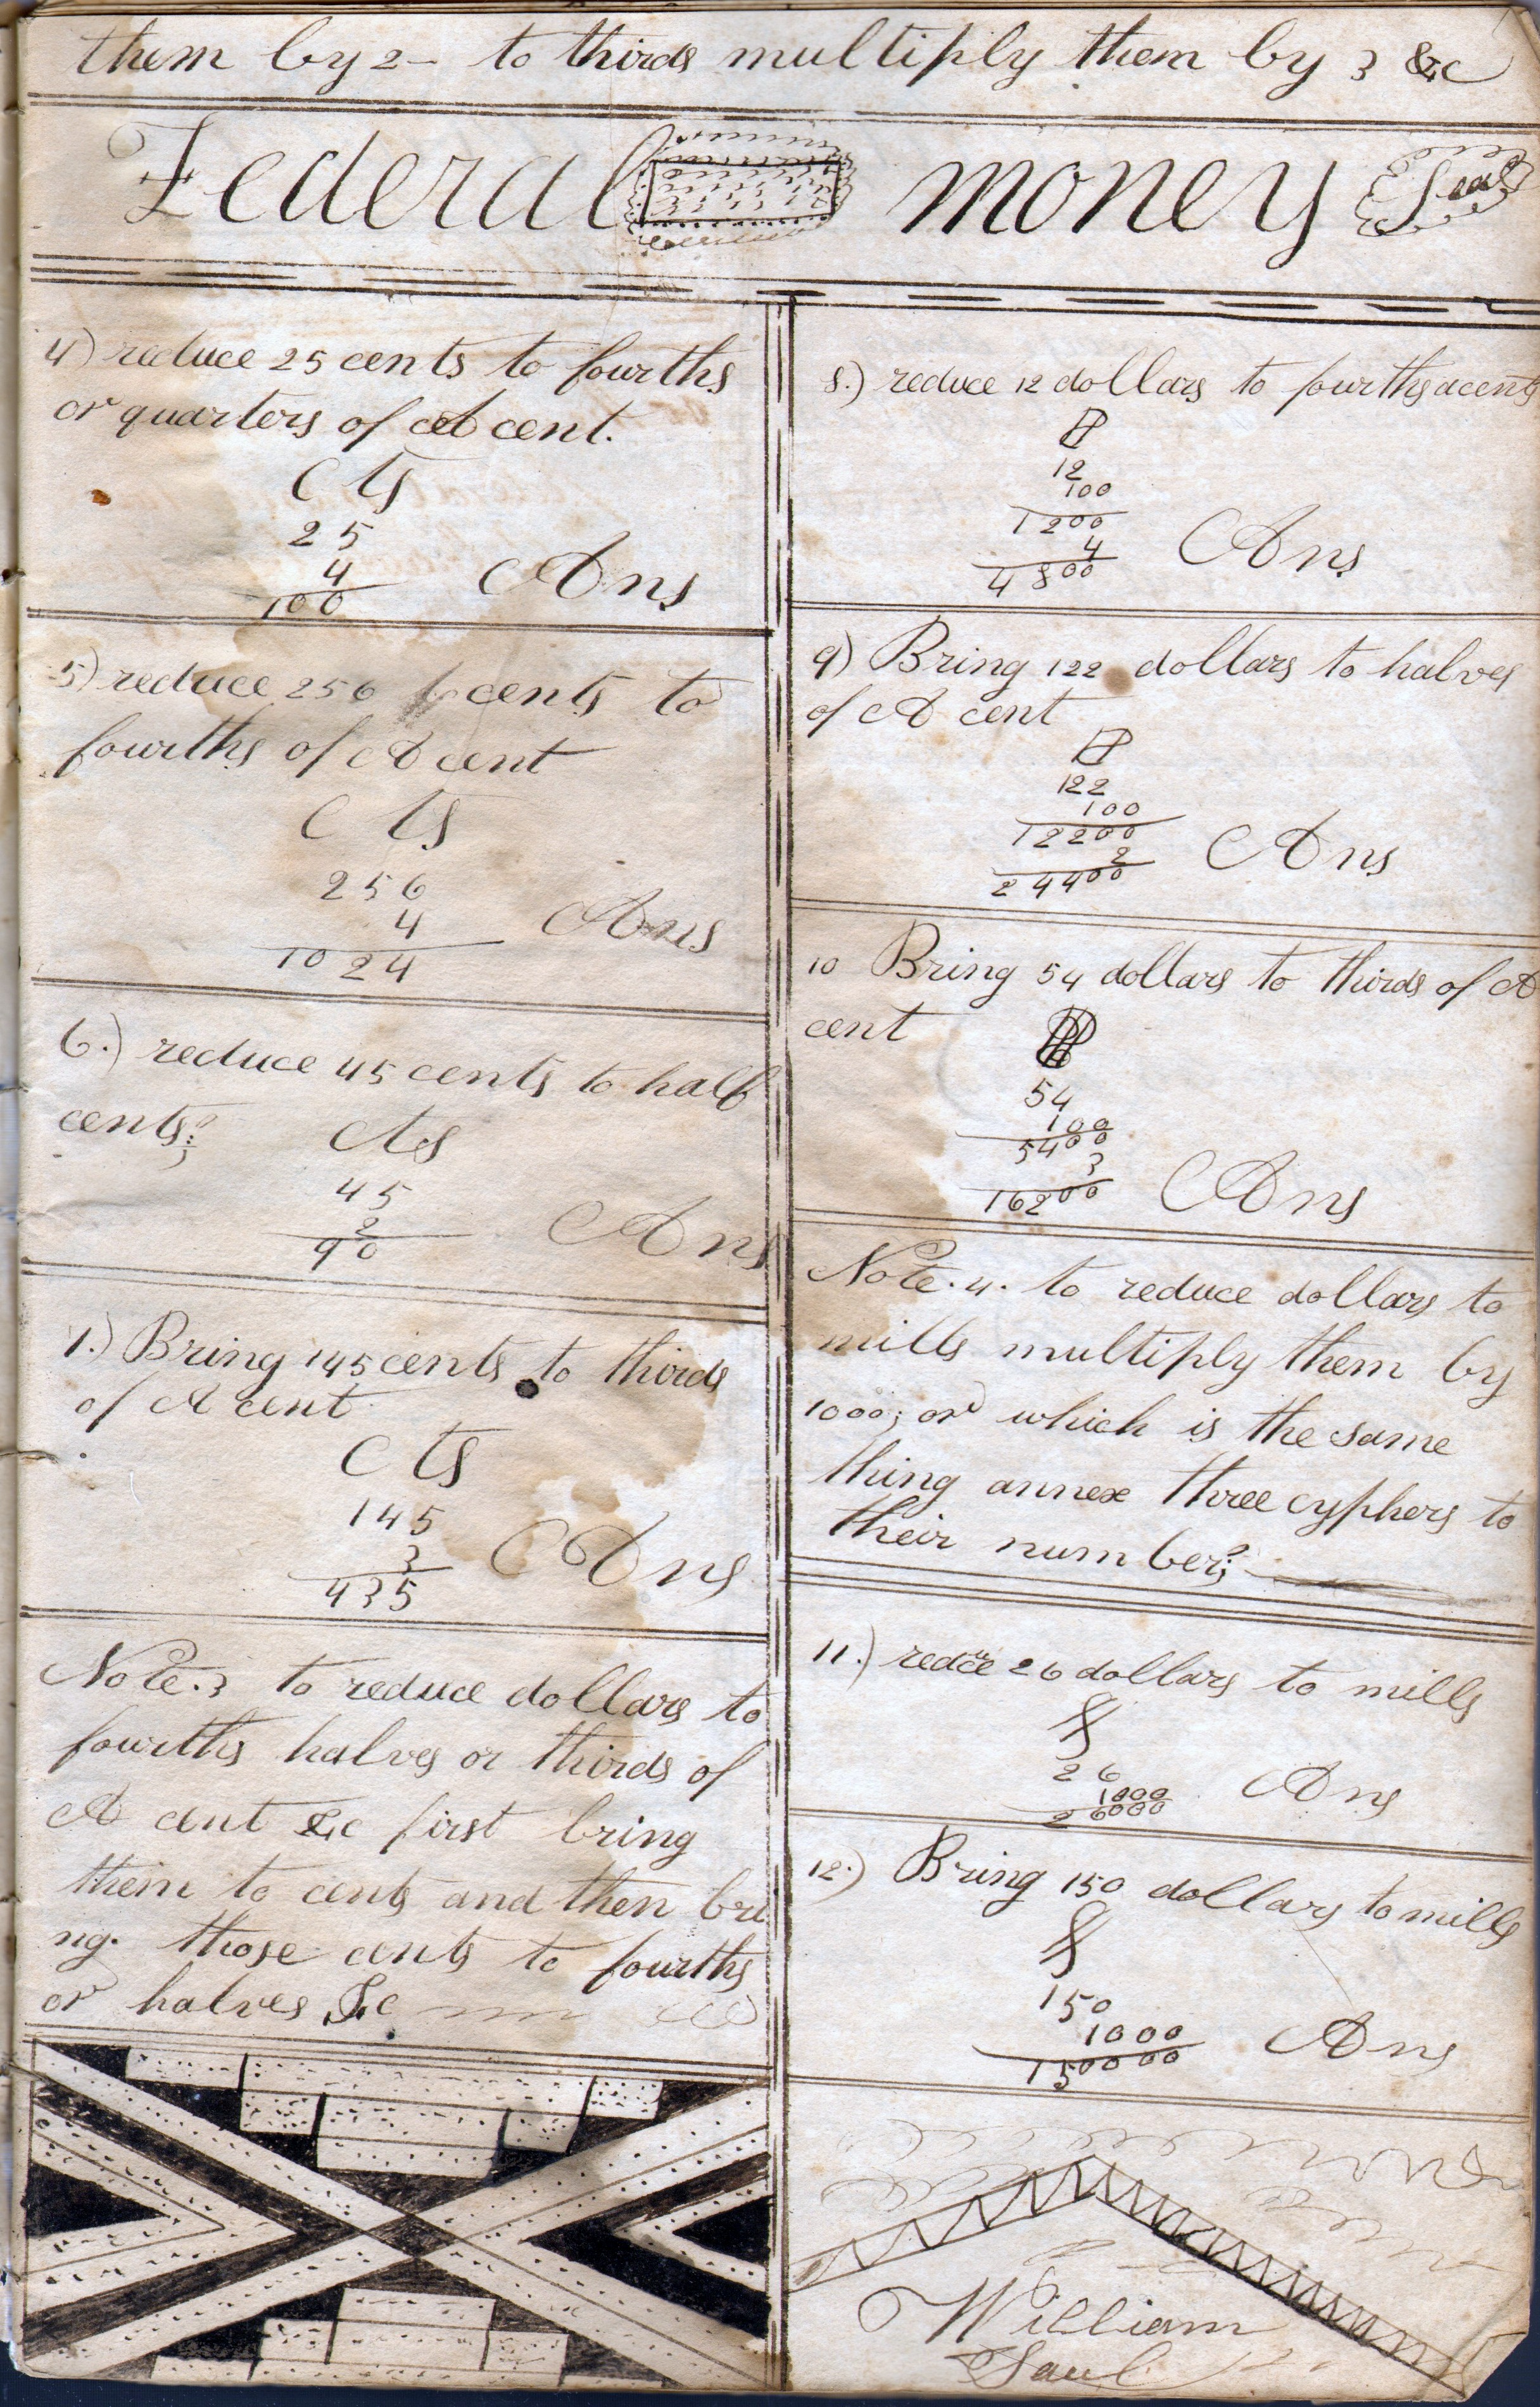 them by 2 - to thirds multiply them by 3 &c
Federal money Seal
4) reduce 25 cents to fourths
or quarters of A cent.
Cts
25
4
100 Ans
5) reduce 256 cents to
fourths of A cent
Cts
256
4 Ans
1024
6.) reduce 45 cents to half
cents;
Cts
45
2 Ans
90
7.) Bring 145 cents to thirds
of A cent
Cts
145
3 Ans
435
Note. 3 to reduce dollars to
fourths halves or thirds of
A cent &c first bring
them to cents and then bri
ng. those cents to fourths
or halves &c
8.) reduce 12 dollars to fourths a cent
D
12
100
1200
4 Ans
4800
9) Bring 122 dollars to halves
of A cent
D
122
100
12200
2 Ans
24400
10 Bring 54 dollars to thirds of A
cent
54
100
5400
3
16200 Ans
Note. 4. to reduce dollars to
mills multiply them by
1000; or which is the same
thing annex three cyphers to
their number;
11.) reduce 26 dollars to mills
$
26
1000 Ans
26000
12.) Bring 150 dollars to mills
$
150
1000 Ans
150000
William
Saul